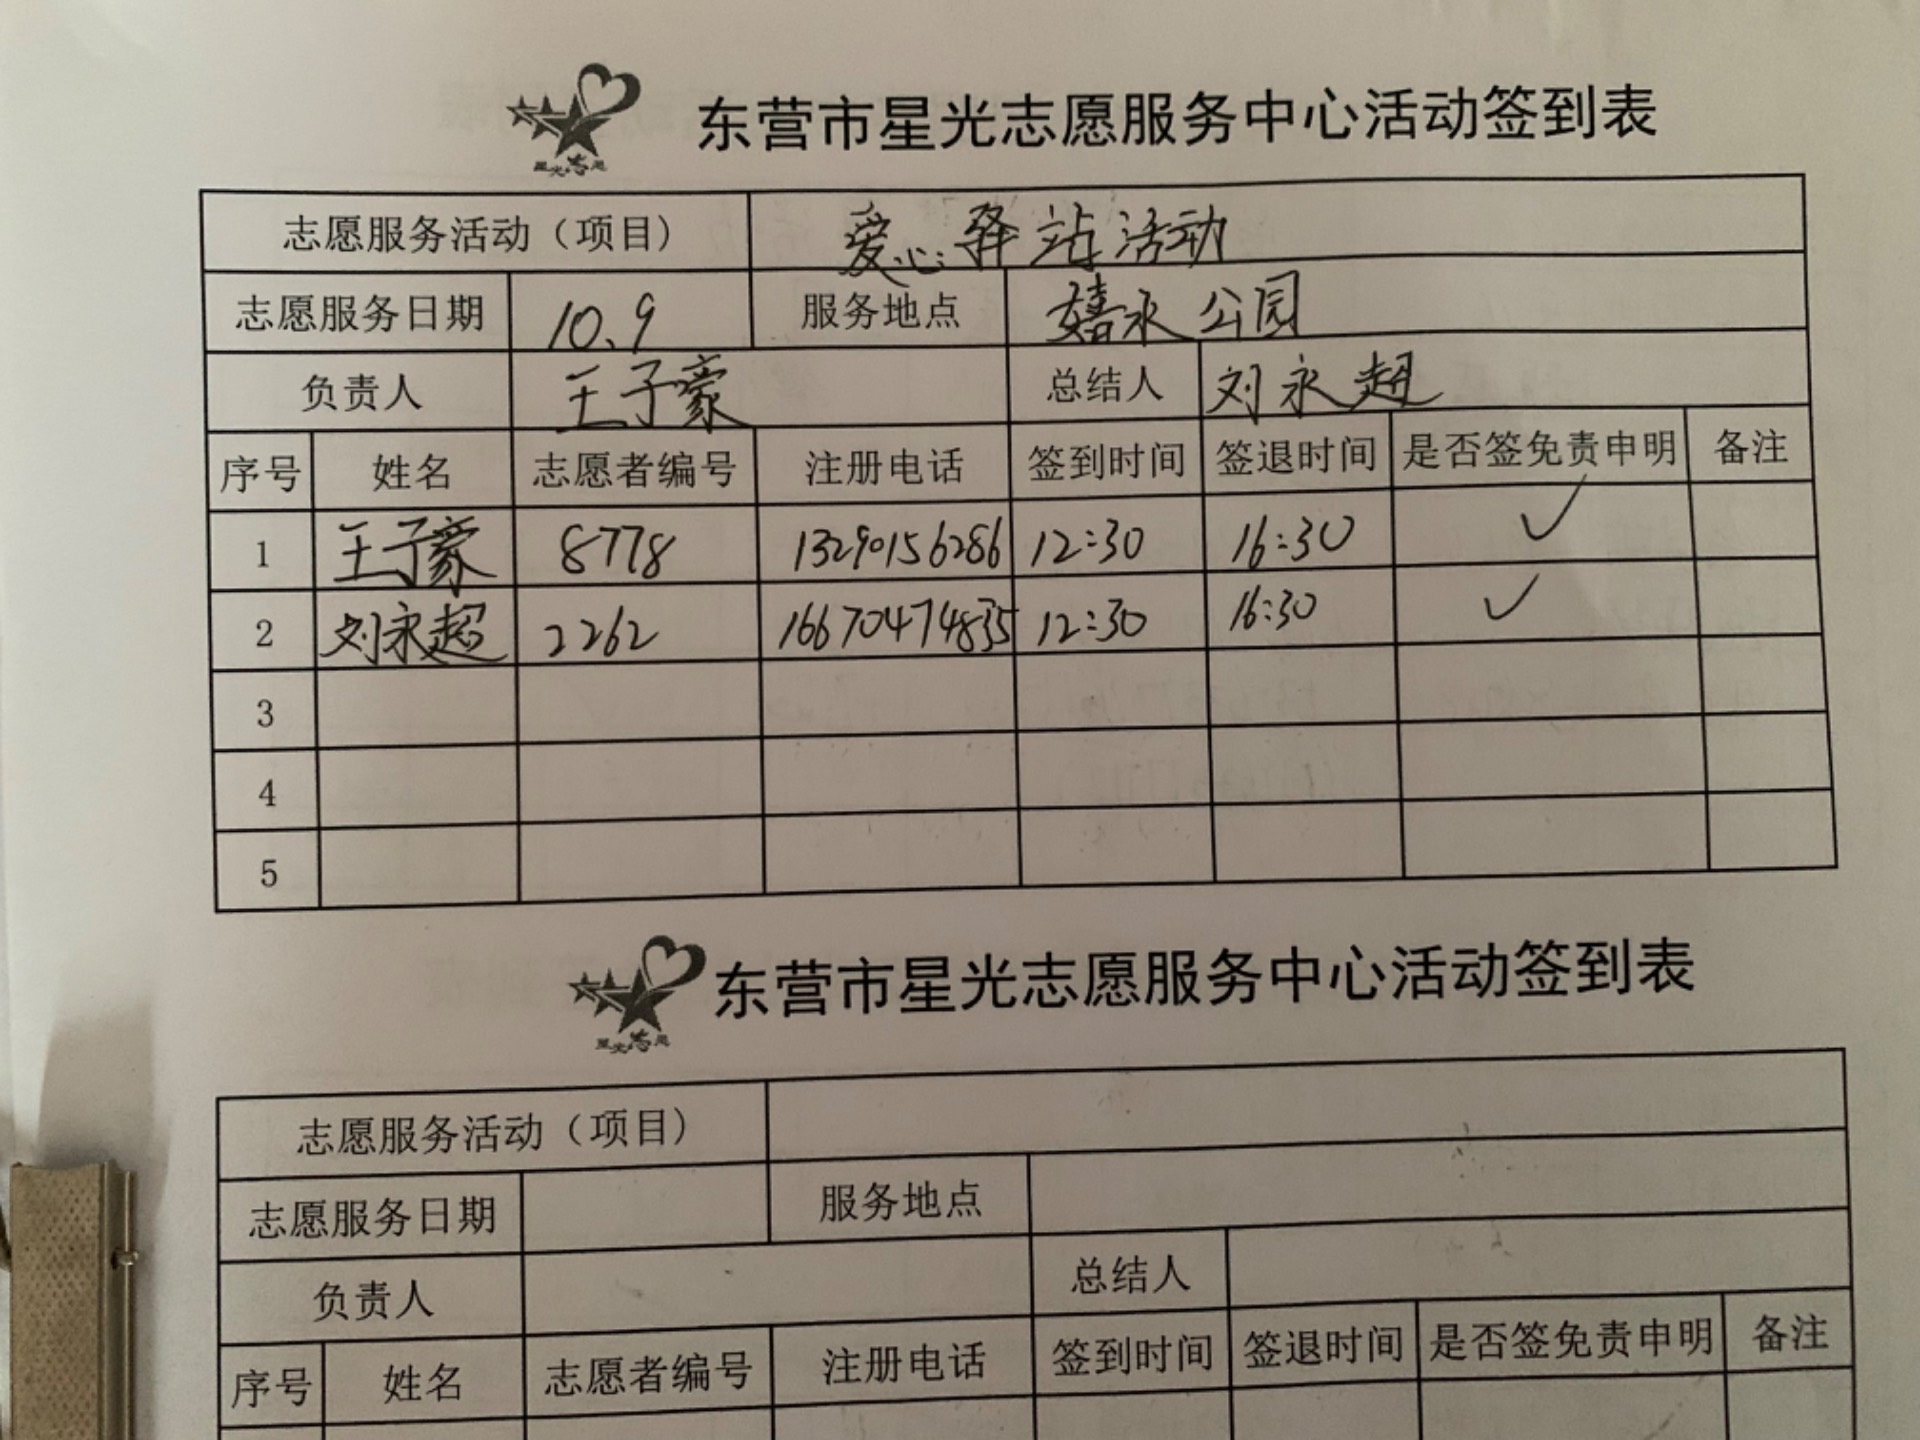 东营市星光志愿服务中心活动签到表
星光志愿
志愿服务活动（项目） 爱心驿站活动
志愿服务日期 10.9 服务地点 嬉水公园
负责人 王子豪 总结人 刘永超
序号 姓名 志愿者编号 注册电话 签到时间 签退时间 是否签免责申明 备注
1 王子豪 8778 13290156286 12:30 16:30 ✓
2 刘永超 2262 16670474835 12:30 16:30 ✓
3
4
5
东营市星光志愿服务中心活动签到表
星光志愿
志愿服务活动（项目）
志愿服务日期 服务地点
负责人 总结人
序号 姓名 志愿者编号 注册电话 签到时间 签退时间 是否签免责申明 备注